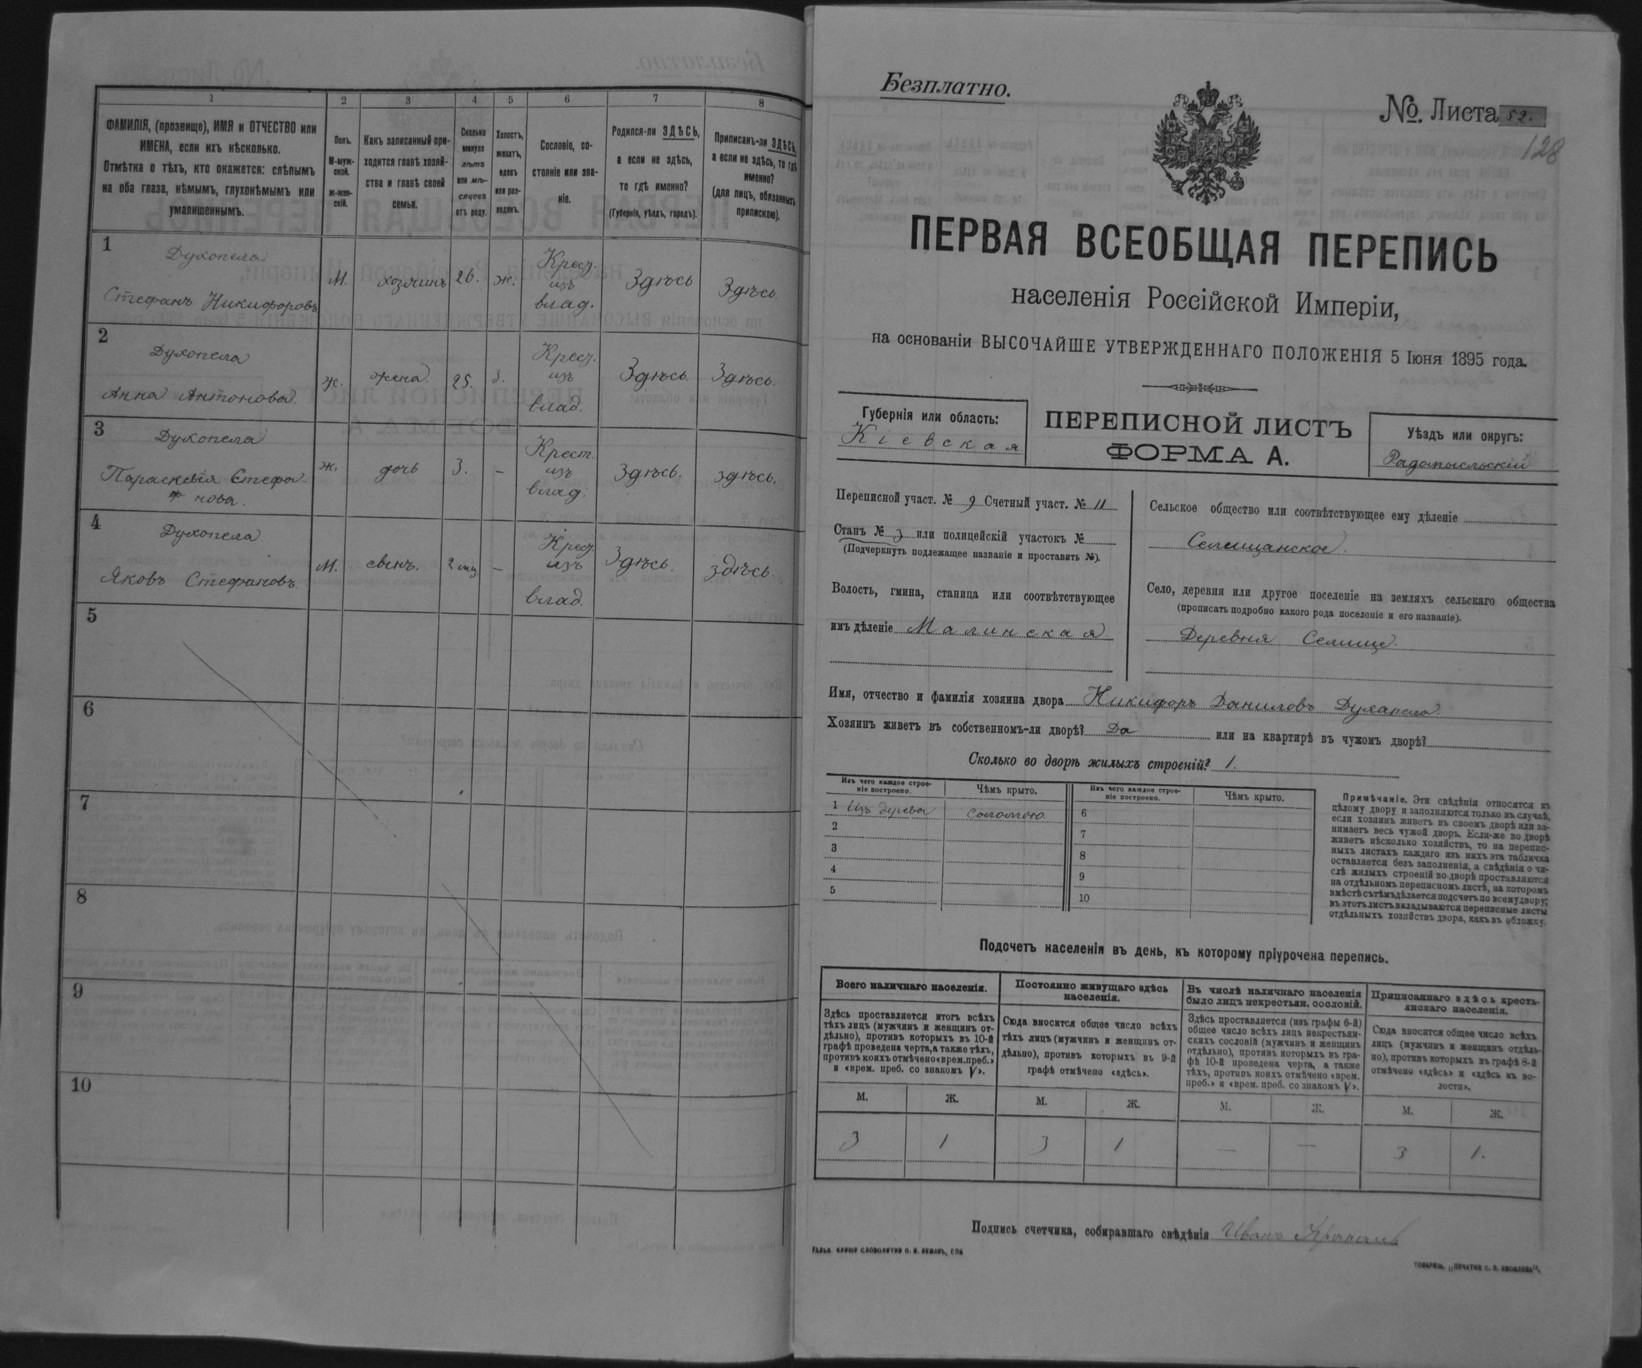 1 2 3 4 5 6 7 8
ФАМИЛІЯ, (прозвище), ИМЯ и ОТЧЕСТВО или
ИМЕНА, если ихъ нѣсколько.
Отмѣтка о тѣхъ, кто окажется: слѣпымъ
на оба глаза, нѣмымъ, глухонѣмымъ или
умалишеннымъ.
Полъ.
М-муж-
ской.
Ж-жен-
скій.
Какъ записанный при-
ходится главѣ хозяй-
ства и главѣ своей
семьи.
Сколько
минуло
лѣтъ
или мѣ-
сяцевъ
отъ роду.
Холостъ,
женатъ,
вдовъ
или раз-
веденъ.
Сословіе, со-
стояніе или зва-
ніе.
Родился-ли ЗДѢСЬ,
а если не здѣсь,
то гдѣ именно?
(Губернія, уѣздъ, городъ).
Приписанъ-ли ЗДѢСЬ,
а если не здѣсь, то гдѣ
именно?
(для лицъ, обязанныхъ
припискою).
1
Духопела
Стефанъ Никифоровъ
М. хозяинъ 26. ж. Крест. изъ влад. Здѣсь Здѣсь.
2
Духопела
Анна Антонова.
ж. жена 25. з. Крест. изъ влад. Здѣсь. Здѣсь.
3
Духопела
Параскевія Стефа
нова.
ж. дочь 3. – Крест. изъ влад. Здѣсь. здѣсь.
4
Духопела
Яковъ Стефановъ
М. сынъ. 2 мц – Крест. изъ влад. Здѣсь. здѣсь.
5
6
7
8
9
10
Безплатно.
№ Листа 52.
128
ПЕРВАЯ ВСЕОБЩАЯ ПЕРЕПИСЬ
населенія Россійской Имперіи,
на основаніи ВЫСОЧАЙШЕ УТВЕРЖДЕННАГО ПОЛОЖЕНІЯ 5 Іюня 1895 года.
Губернія или область:
Кіевская
ПЕРЕПИСНОЙ ЛИСТЪ
ФОРМА А.
Уѣздъ или округъ:
Радомысльскій
Переписной участ. № 9 Счетный участ. № 11
Станъ № 3 или полицейскій участокъ №
(Подчеркнуть подлежащее названіе и проставить №).
Волость, гмина, станица или соотвѣтствующее
имъ дѣленіе Малинская
Сельское общество или соотвѣтствующее ему дѣленіе
Селищанское.
Село, деревня или другое поселеніе на земляхъ сельскаго общества
(прописать подробно какого рода поселеніе и его названіе).
Деревня Селище.
Имя, отчество и фамилія хозяина двора Никифоръ Даниловъ Духапела.
Хозяинъ живетъ въ собственномъ-ли дворѣ? Да или на квартирѣ въ чужомъ дворѣ?
Сколько во дворѣ жилыхъ строеній? 1.
Изъ чего каждое строе-
ніе построено.
Чѣмъ крыто.
Изъ чего каждое строе-
ніе построено.
Чѣмъ крыто.
1 Изъ дерева соломою. 6
2 7
3 8
4 9
5 10
Примѣчаніе. Эти свѣдѣнія относятся къ
цѣлому двору и заполняются только въ случаѣ,
если хозяинъ живетъ въ своемъ дворѣ или за-
нимаетъ весь чужой дворъ. Если-же во дворѣ
живетъ нѣсколько хозяйствъ, то на перепис-
ныхъ листахъ каждаго изъ нихъ эта табличка
оставляется безъ заполненія, а свѣдѣнія о чи-
слѣ жилыхъ строеній во дворѣ проставляются
на отдѣльномъ переписномъ листѣ, на которомъ
вмѣстѣ съ тѣмъ дѣлается подсчетъ по всему двору;
въ этотъ листъ вкладываются переписные листы
отдѣльныхъ хозяйствъ двора, какъ въ обложку.
Подсчетъ населенія въ день, къ которому пріурочена перепись.
Всего наличнаго населенія.
Здѣсь проставляется итогъ всѣхъ
тѣхъ лицъ (мужчинъ и женщинъ от-
дѣльно), противъ которыхъ въ 10-й
графѣ проведена черта, а также тѣхъ,
противъ коихъ отмѣчено «врем. преб.»
и «врем. преб. со знакомъ V».
Постоянно живущаго здѣсь
населенія.
Сюда вносится общее число всѣхъ
тѣхъ лицъ (мужчинъ и женщинъ от-
дѣльно), противъ которыхъ въ 9-й
графѣ отмѣчено «здѣсь».
Въ числѣ наличнаго населенія
было лицъ некрестьян. сословій.
Здѣсь проставляется (изъ графы 6-й)
общее число всѣхъ лицъ некрестьян-
скихъ сословій (мужчинъ и женщинъ
отдѣльно), противъ которыхъ въ гра-
фѣ 10-й проведена черта, а также
тѣхъ, противъ коихъ отмѣчено «врем.
преб.» и «врем. преб. со знакомъ V».
Приписаннаго здѣсь кресть-
янскаго населенія.
Сюда вносится общее число всѣхъ
лицъ (мужчинъ и женщинъ отдѣль-
но), противъ которыхъ въ графѣ 8-й
отмѣчено «здѣсь» и «здѣсь къ во-
лости».
М. Ж. М. Ж. М. Ж. М. Ж.
3 1 3 1 — — 3 1.
Подпись счетчика, собиравшаго свѣдѣнія Иванъ